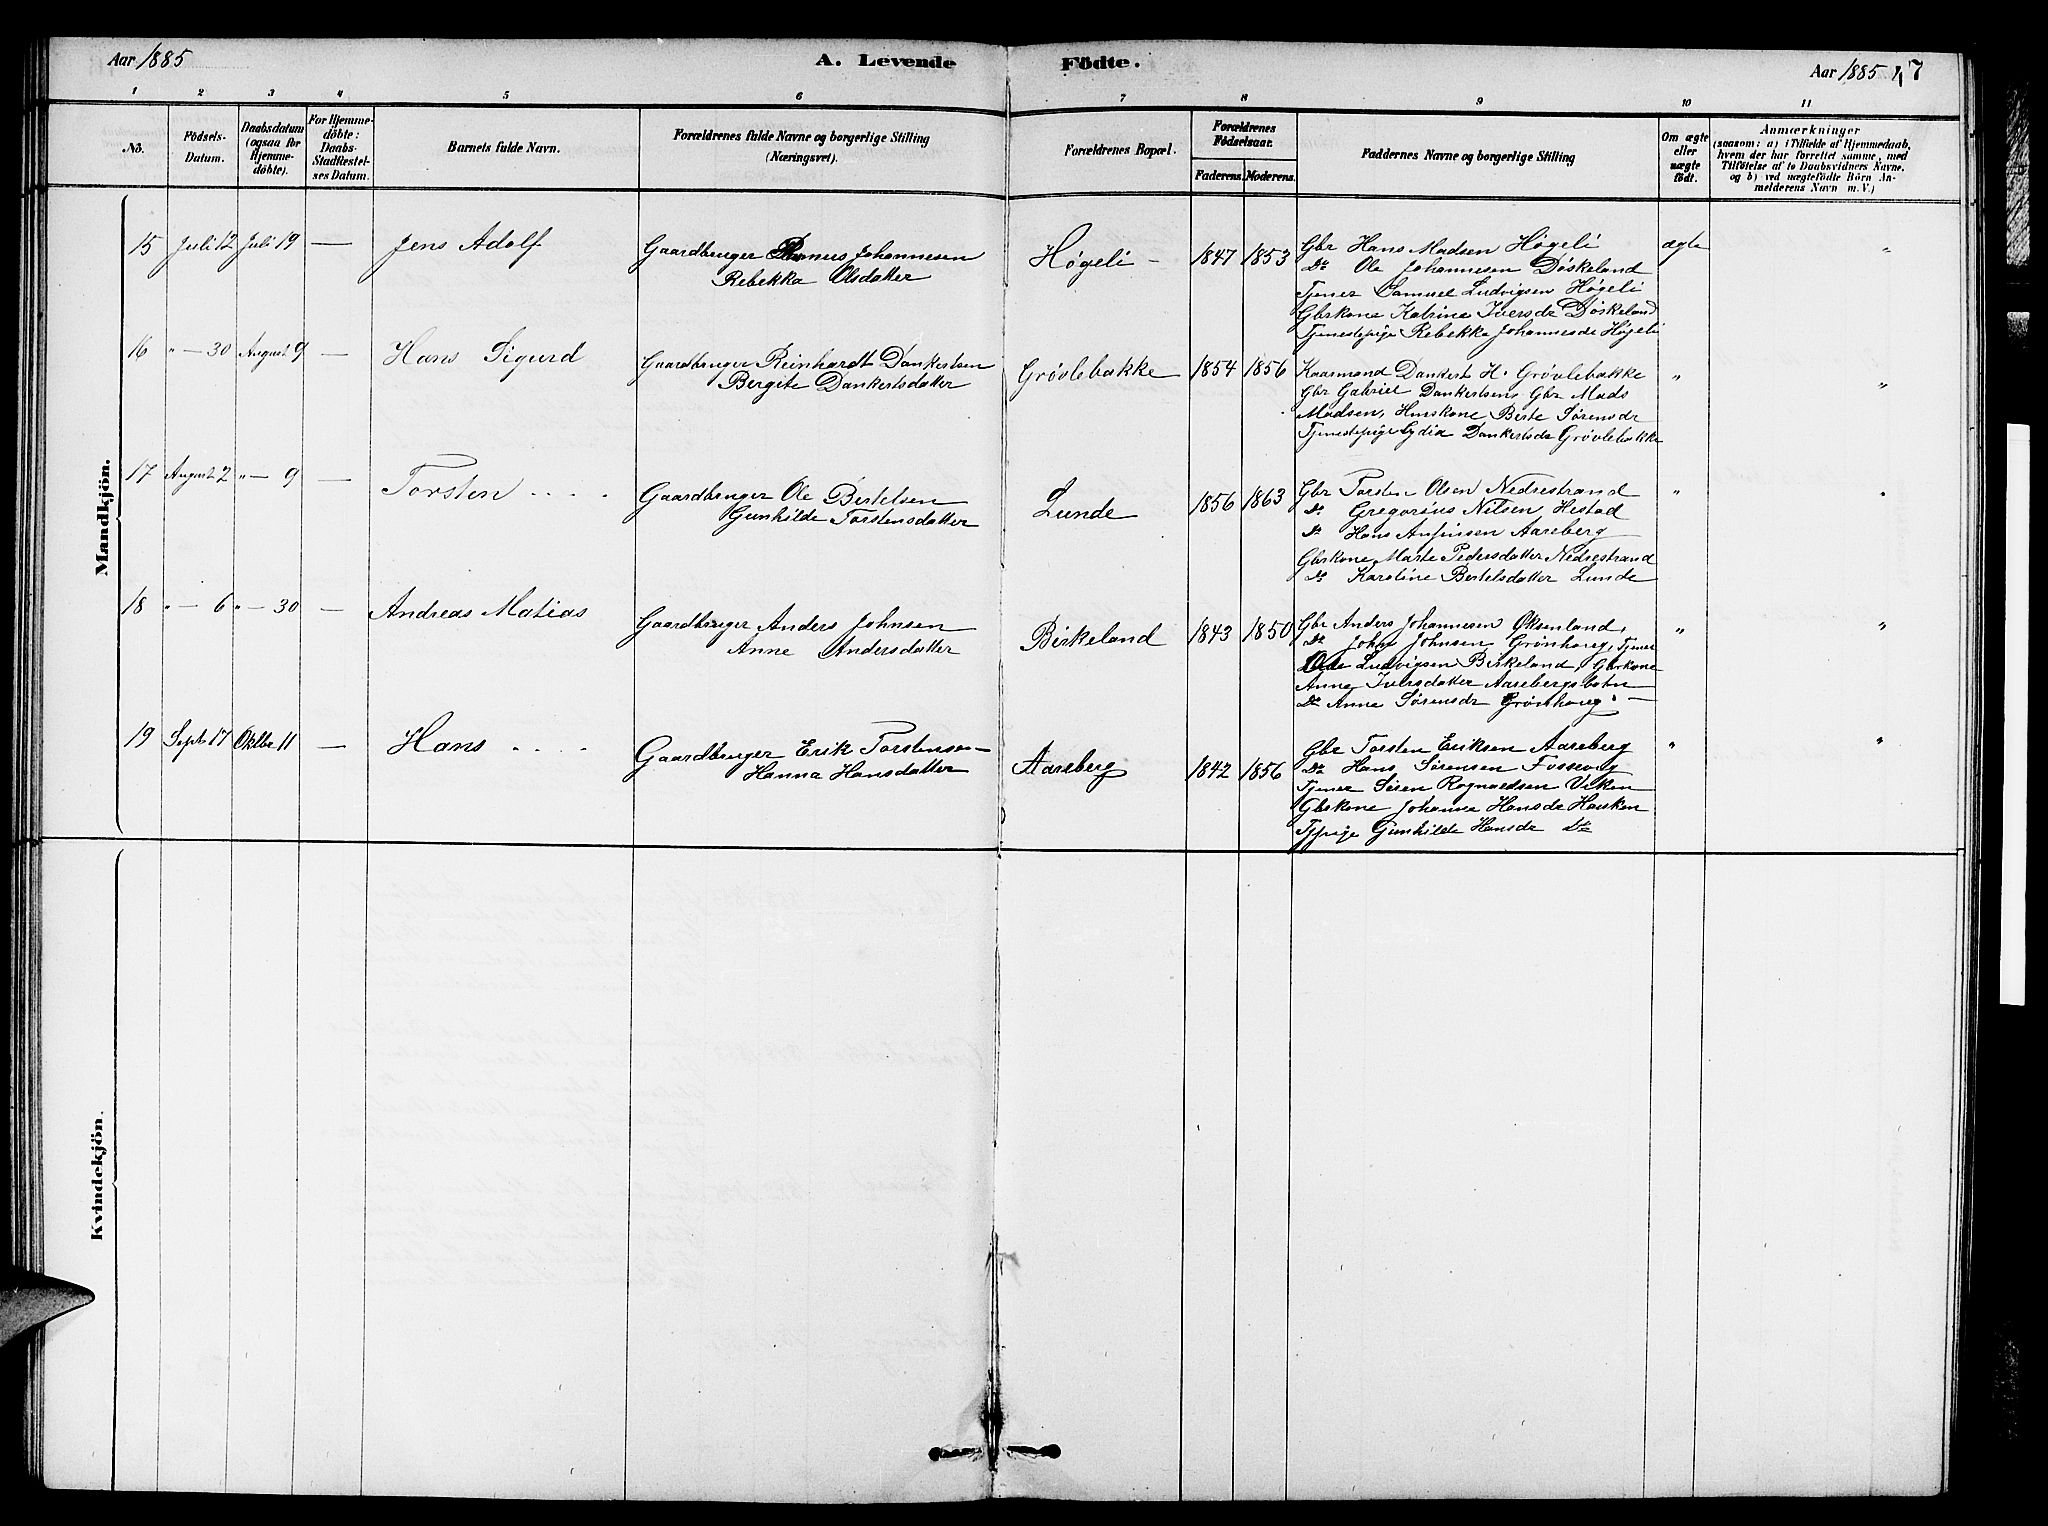 Aar 1885
A. Levende Fødte.
Aar 1885 47
1 2 3 4 5 6 7 8 9 10 11
No.
Fødsels-
Datum.
Daabsdatum
(ogsaa for
Hjemme-
døbte).
For Hjemme-
døbte:
Daabs-
Stadfæstel-
ses Datum.
Barnets fulde Navn.
Forældrenes fulde Navne og borgerlige Stilling
(Næringsvei).
Forældrenes Bopæl.
Forældrenes
Fødselsaar.
Faderens. Moderens.
Faddernes Navne og borgerlige Stilling
Om ægte
eller
uægte
født.
Anmærkninger
(saasom: a) i Tilfælde af Hjemmedaab,
hvem der har forrettet samme, med
Tilføielse af to Daabsvidners Navne.
og b) ved uægtefødte Børn An-
melderens Navn m. V.)
Mandkjön.
15 Juli 12 Juli 19 — Jens Adolf
Gaardbruger Johannesen
Rebekka Olsdatter
Høgeli — 1847 1853
Gbr Hans Madsen Høgeli
Do Ole Johannesen Døskeland
Tjener Samuel Ludvigsen Høgeli
Gbrkone Katrine Iversdr Døskeland
Tjenestepige Rebekka Johannesdr Høgeli
ægte "
16 " — 30 August 9 — Hans Sigurd
Gaardbruger Reinhardt Dankertsen
Bergite Dankertsdatter
Grøvlebakke 1854 1856
Kaarmand Dankert H. Grøvlebakke
Gbr Gabriel Dankertsen, Gbr Mads
Madsen, Huskone Berte Sørensdr
Tjenestepige Lydia Dankertsdr Grøvlebakke
" "
17 August 2 " — 9 — Torsten . . . .
Gaardbruger Ole Bertelsen
Gunhilde Torstensdatter
Lunde 1856 1863
Gbr Torsten Olsen Nedrestrand
Do Gregorius Nilsen Hestad
Do Hans Anfinsen Aareberg
Gbrkone Marte Pedersdatter Nedrestrand
Do Karoline Bertelsdatter Lunde
" "
18 " — 6 " — 30 — Andreas Matias
Gaardbruger Anders Johnsen
Anne Andersdatter
Birkeland 1843 1850
Gbr Anders Johannesen Øksenland,
Do John Johnsen Grønhoug, Tjener
Ole Ludvigsen Birkeland, Gbrkone
Anne Iversdatter Aarebergsbotn
Do Anne Sørensdr Grønhoug. —
" "
19 Septb 17 Oktbr 11 — Hans . . . .
Gaardbruger Erik Torstensen
Hanna Hansdatter
Aareberg 1842 1856
Gbr Torsten Eriksen Aareberg
Do Hans Sørensen
Tjener Søren Rognaldsen Viken
Gbrkone Johanna Hansdr
Tjpige Gunhilde Hansdr Do
" "
Kvindekjön.